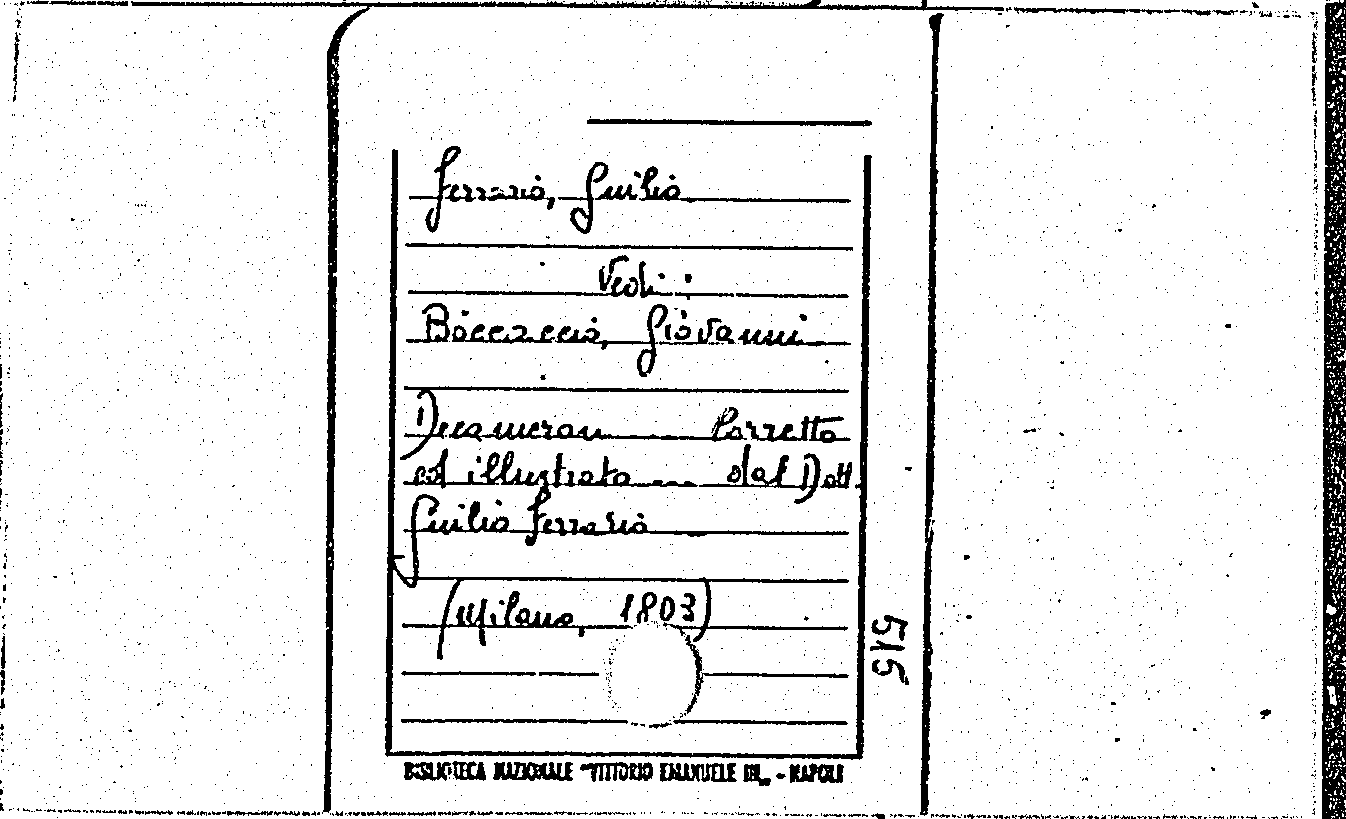 Ferrario, Giulio
Vedi:
Boccaccio, Giovanni
Decameron ... Corretto
ed illustrato ... dal Dott.
Giulio Ferrario
(Milano, 1803)
515
BIBLIOTECA NAZIONALE "VITTORIO EMANUELE III„ - NAPOLI